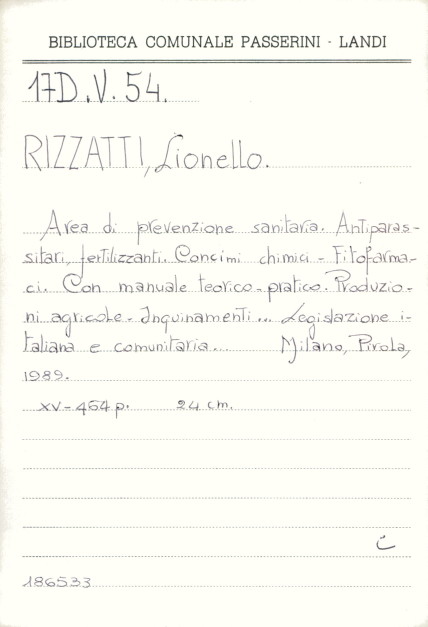 BIBLIOTECA COMUNALE PASSERINI - LANDI
17D.V.54.
RIZZATTI, Lionello.
Area di prevenzione sanitaria. Antiparas-
sitari, fertilizzanti. Concimi chimici - Fitofarma-
ci. Con manuale teorico-pratico. Produzio-
ni agricole. Inquinamenti... Legislazione i-
taliana e comunitaria... Milano, Pirola,
1989.
XV-464 p. 24 cm.
186533